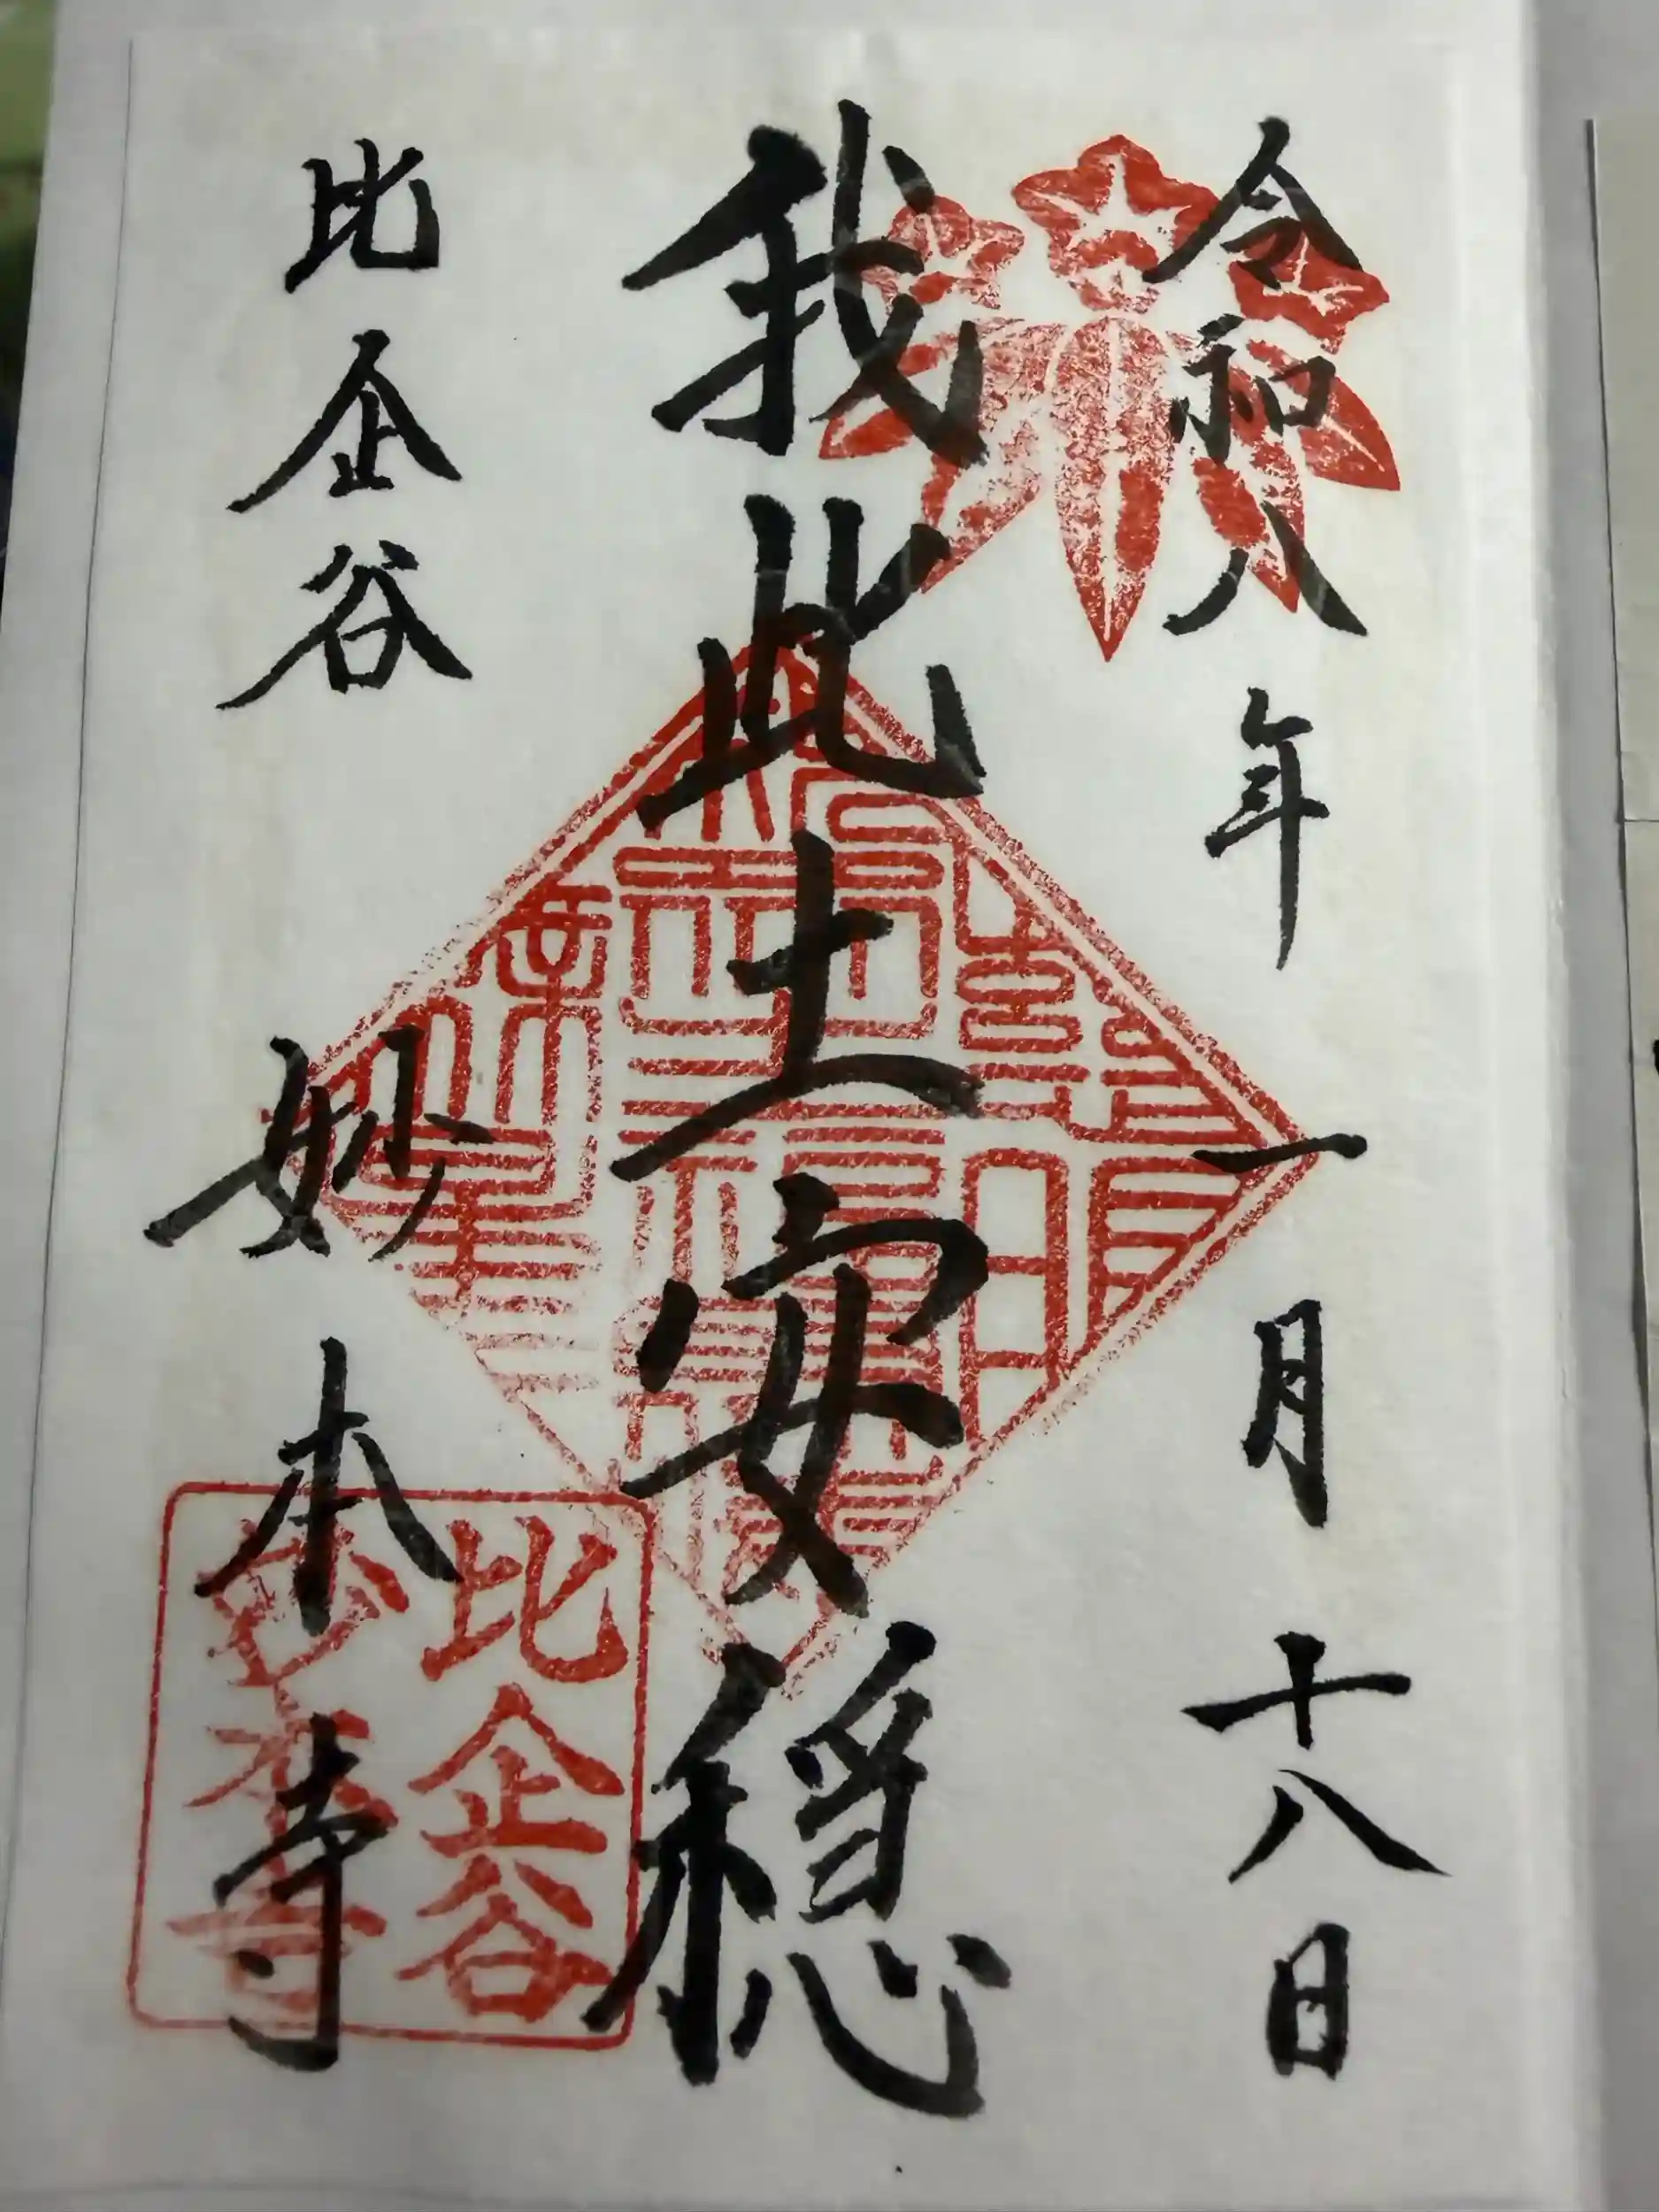 令和八年一月十八日
我此土安穏
比企谷
妙本寺
比企谷
妙本寺